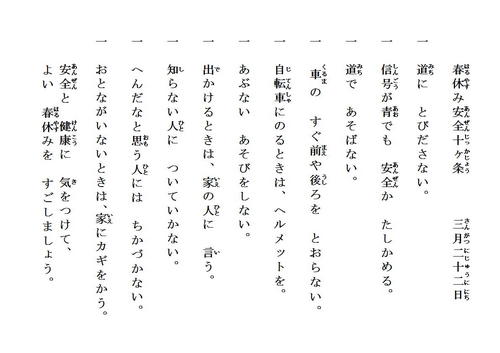 春休み安全十ヶ条 三月二十二日
一 道に とびださない。
一 信号が青でも 安全か たしかめる。
一 道で あそばない。
一 車の すぐ前や後ろを とおらない。
一 自転車にのるときは、ヘルメットを。
一 あぶない あそびをしない。
一 出かけるときは、家の人に 言う。
一 知らない人に ついていかない。
一 へんだなと思う人には ちかづかない。
一 おとながいないときは、家にカギをかう。
安全と 健康に 気をつけて、
よい 春休みを すごしましょう。